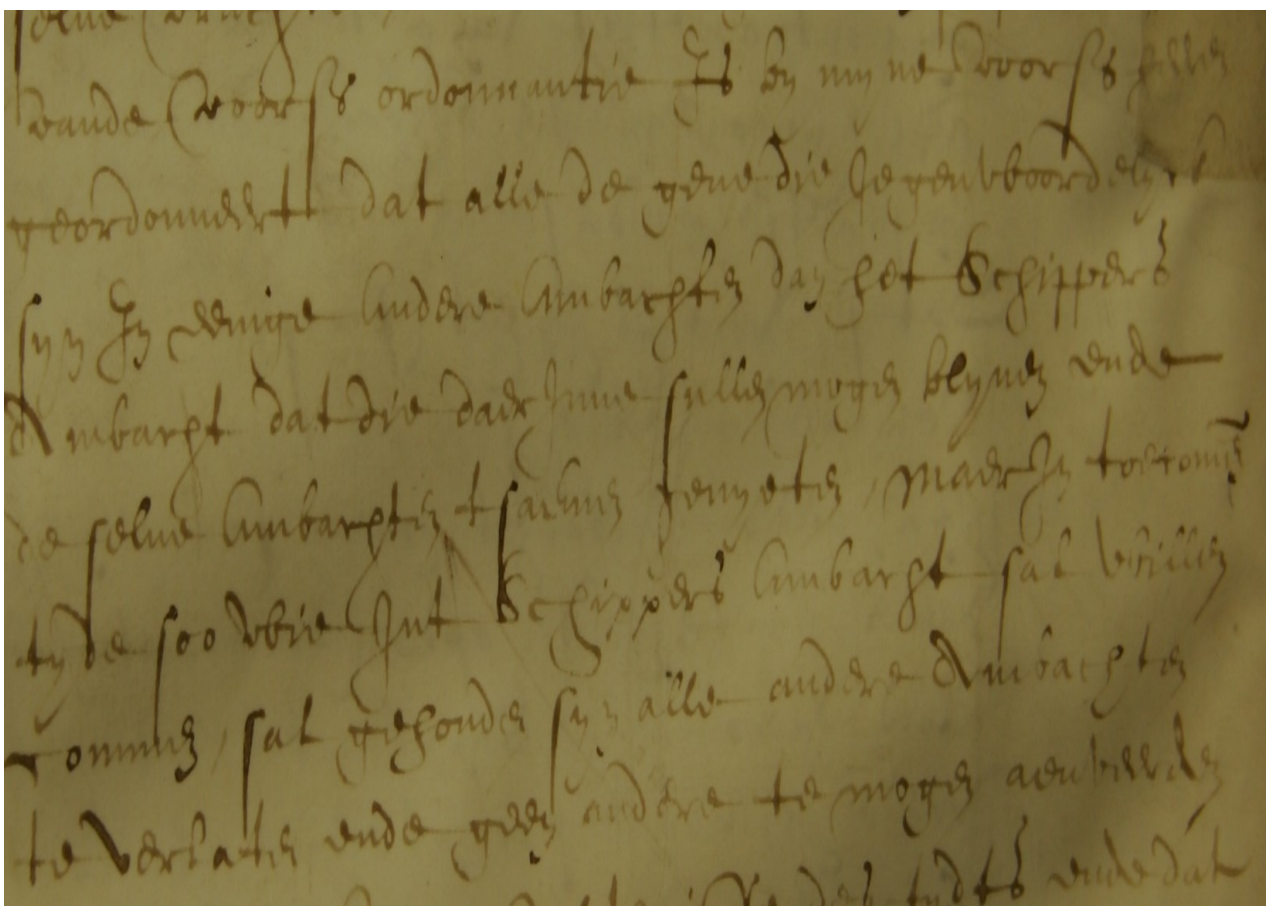 selve
vande voors ordonnantie Is by myne voors heeren
geordonneert dat alle de gene die Jegenwoordelyck
syn In eenige andere Ambachten dan het Schippers
Ambacht dat die daer Inne sullen mogen blyven ende
de selve Ambachten tsamen genyeten, maer In toecomen
tyde soo wie Int Schippers Ambacht sal willen
commen, sal gehouden syn alle andere Ambachten
te verlaten ende geen andere te mogen aenveerden
tydts ende dat